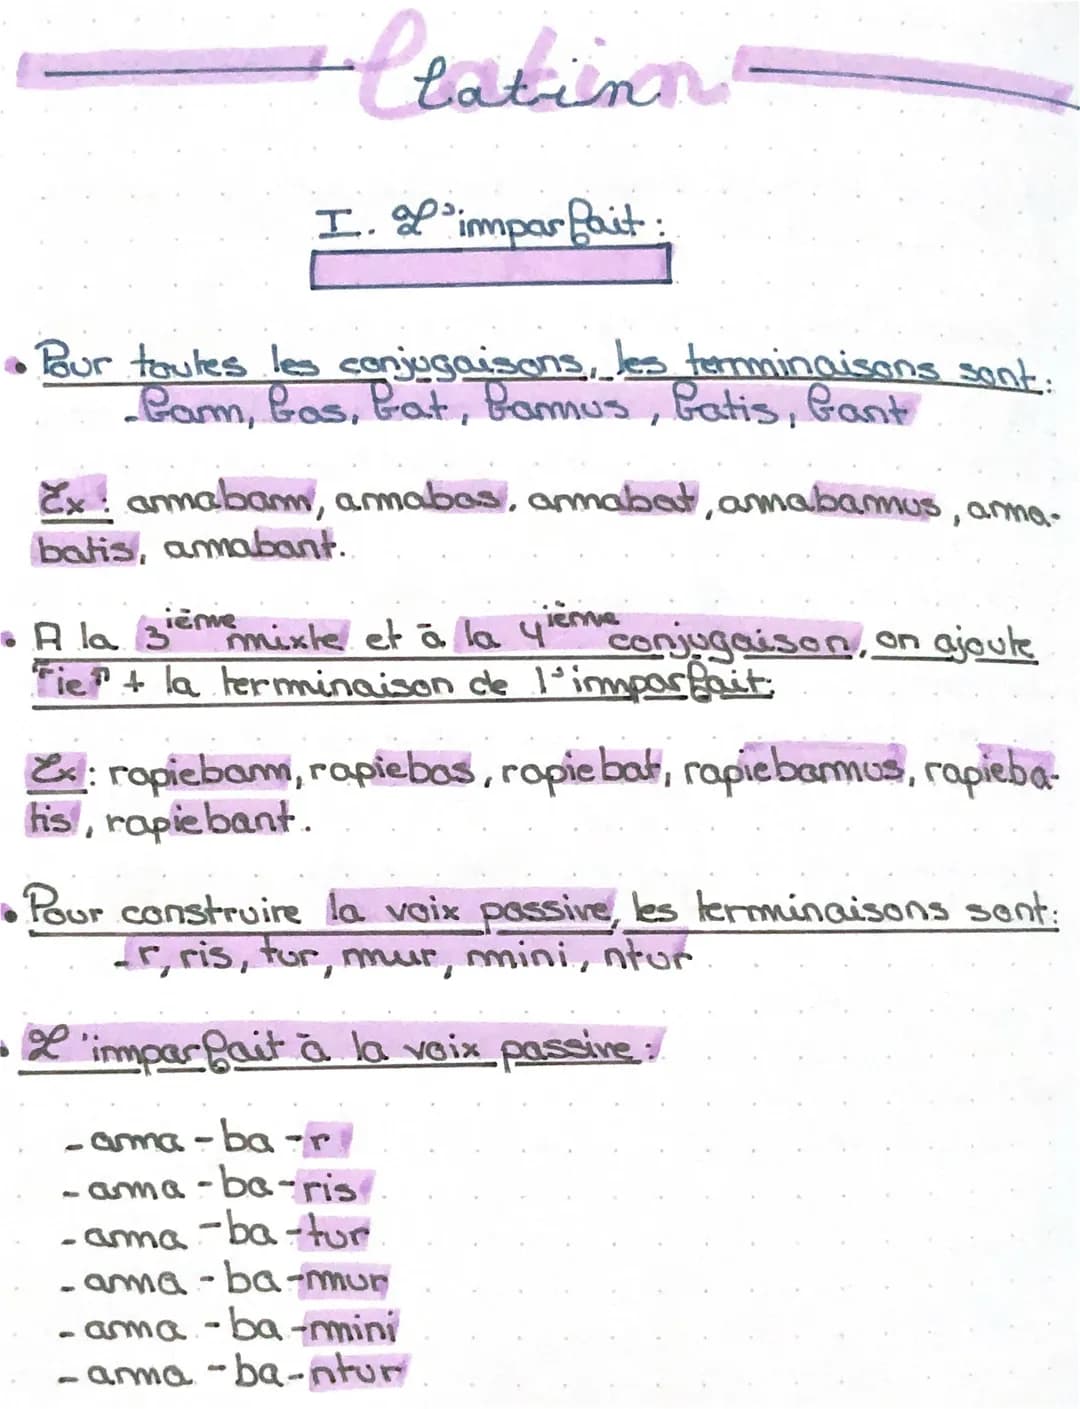 Latin
I. L'imparfait :
• Pour toutes les conjugaisons, les terminaisons sont :
-bam, bas, bat, bamus, batis, bant
Ex : amabam, amabas, amabat, amabamus, ama-
batis, amabant.
• A la 3ième mixte et à la 4ième conjugaison, on ajoute
"ie" + la terminaison de l'imparfait :
Ex : rapiebam, rapiebas, rapiebat, rapiebamus, rapieba-
tis, rapiebant.
• Pour construire la voix passive, les terminaisons sont :
-r, ris, tur, mur, mini, ntur
• L'imparfait à la voix passive :
- ama - ba - r
- ama - ba - ris
- ama - ba - tur
- ama - ba - mur
- ama - ba - mini
- ama - ba - ntur